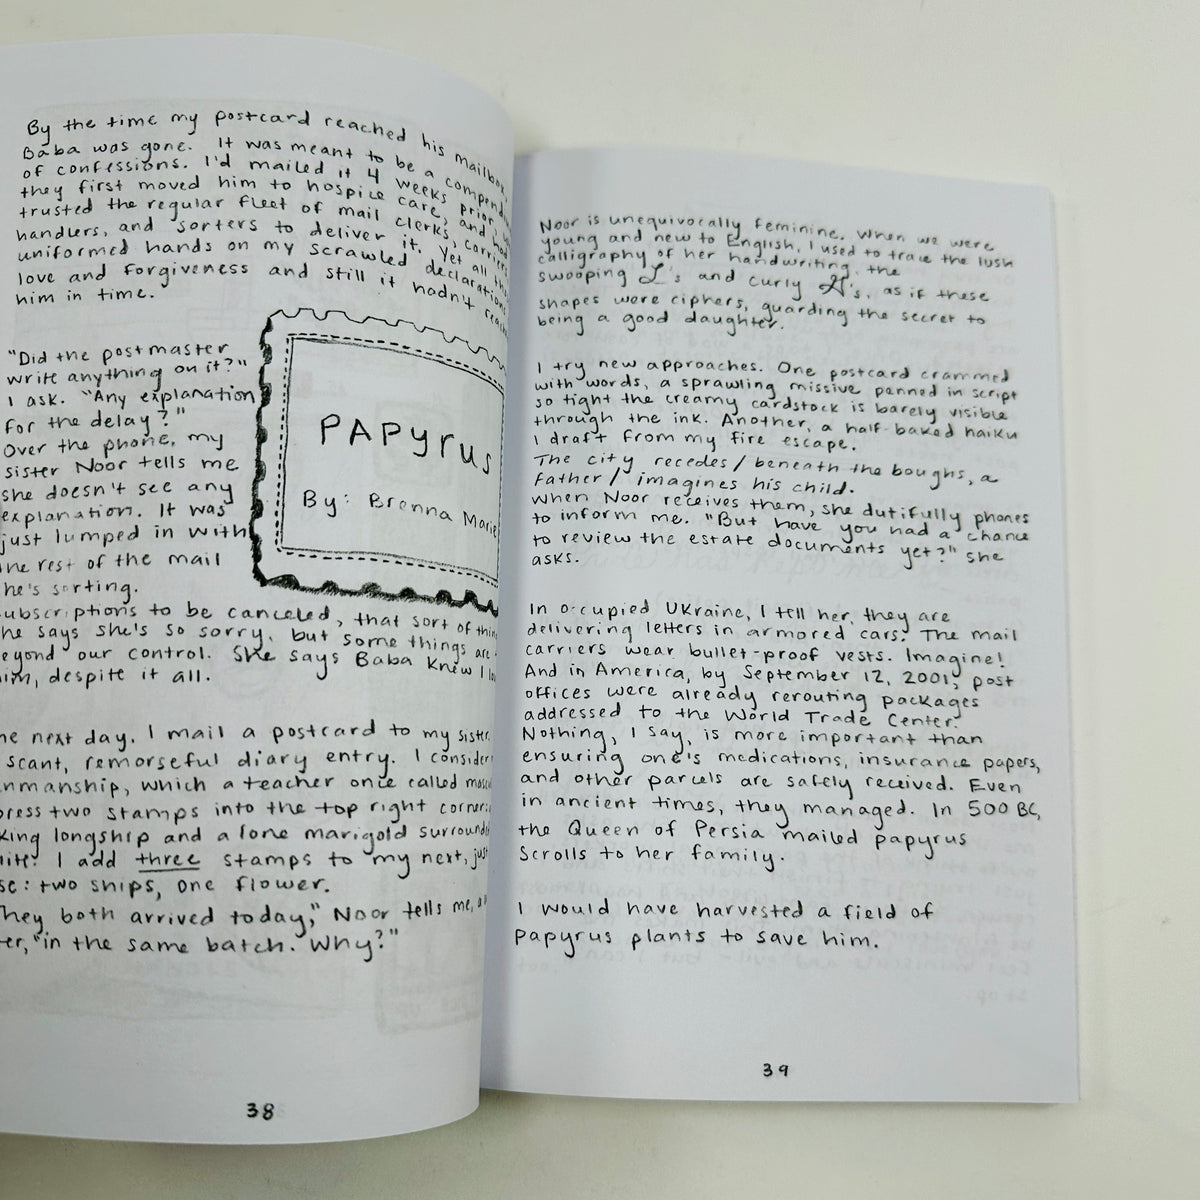 By the time my postcard reached his mailbox,
Baba was gone. It was meant to be a
of confessions. I'd mailed it 4 weeks prior,
they first moved him to hospice care, and had
trusted the regular fleet of mail clerks, carriers
handlers, and sorters to deliver it. Yet all
uniformed hands on my scrawled declarations
love and forgiveness and still it hadn't
him in time.
"Did the postmaster
write anything on it?"
I ask. "Any explanation
for the delay?"
Over the phone, my
sister Noor tells me
she doesn't see any
explanation. It was
just lumped in with
the rest of the mail
he's sorting.
ubscriptions to be canceled, that sort of
he says she's so sorry, but some things are
eyond our control. She says Baba knew I
im, despite it all.
PAPyrus
By: Brenna Marie
he next day, I mail a postcard to my sister
scant, remorseful diary entry. I consider
nmanship, which a teacher once called
press two stamps into the top right corner:
king longship and a lone marigold
I add three stamps to my next, just
se: two ships, one flower.
hey both arrived today," Noor tells me,
er, "in the same batch. Why?"
38
Noor is unequivocally feminine. When we were
young and new to English, I used to trace the lush
calligraphy of her handwriting, the
swooping L's and curly A's, as if these
shapes were ciphers, guarding the secret to
being a good daughter.
I try new approaches. One postcard crammed
with words, a sprawling missive penned in script
so tight the creamy cardstock is barely visible
through the ink. Another, a half-baked haiku
I draft from my fire escape.
The city recedes/ beneath the boughs, a
father/ imagines his child.
When Noor receives them, she dutifully phones
to inform me. "But have you had a chance
to review the estate documents yet?" she
asks.
In occupied Ukraine, I tell her, they are
delivering letters in armored cars. The mail
carriers wear bullet-proof vests. Imagine!
And in America, by September 12, 2001, post
offices were already rerouting packages
addressed to the World Trade Center.
Nothing, I say, is more important than
ensuring one's medications, insurance papers,
and other parcels are safely received. Even
in ancient times, they managed. In 500 BC,
the Queen of Persia mailed papyrus
scrolls to her family.
I would have harvested a field of
papyrus plants to save him.
39